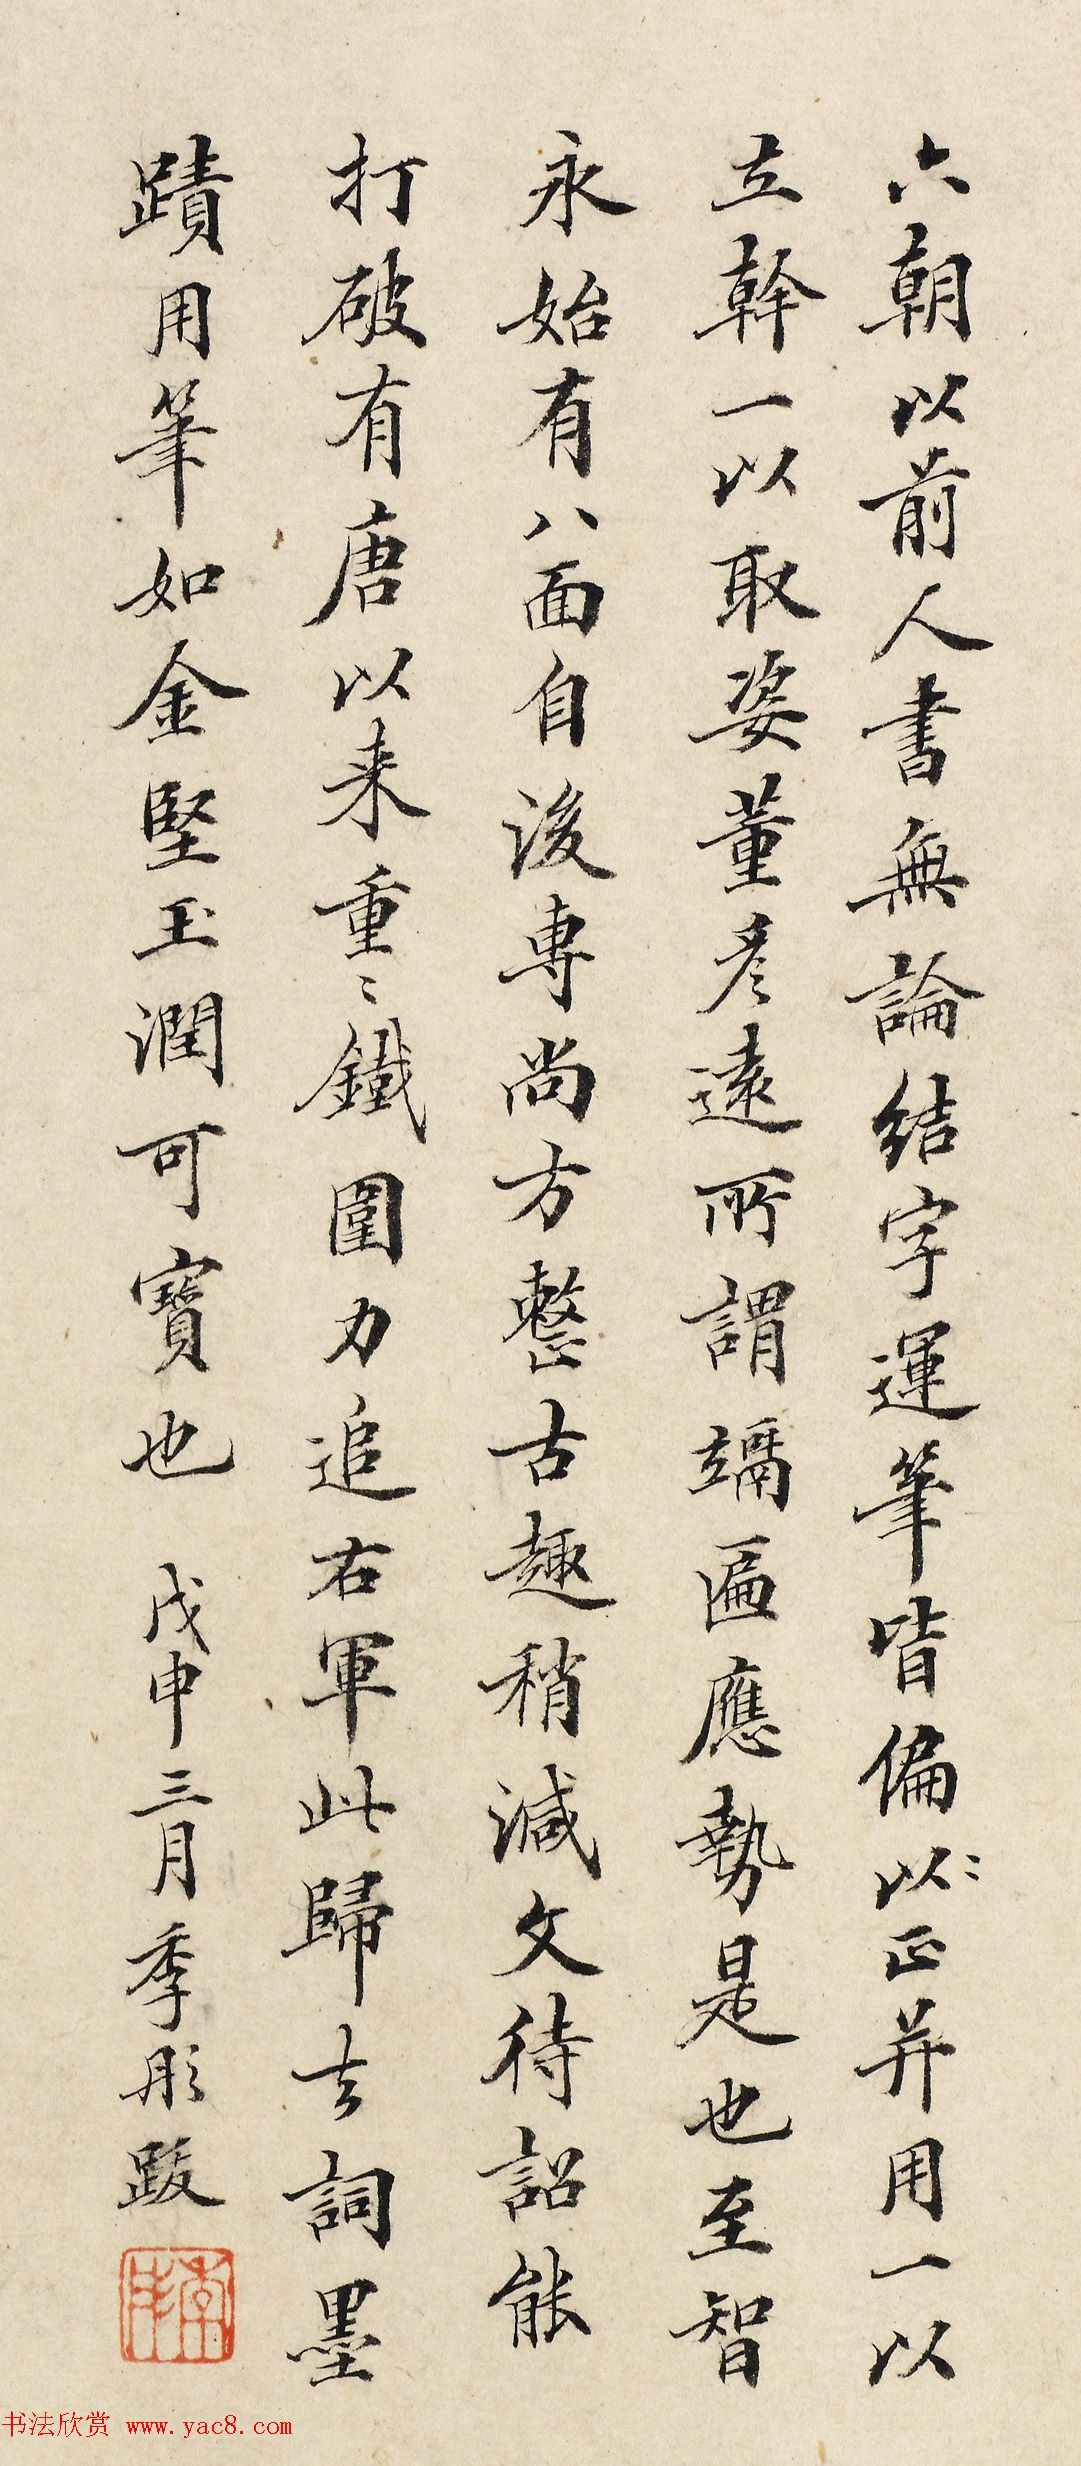 六朝以前人書無論結字運筆皆偏以〻正并用一以
立幹一以取姿董彥遠所謂㼷匾應勢是也至智
永始有八面自後專尚方整古趣稍減文待詔能
打破有唐以來重〻鐵圍力追右軍此歸去詞墨
蹟用筆如金堅玉潤可寶也 戊申三月季彤跋
书法欣赏 www.yac8.com